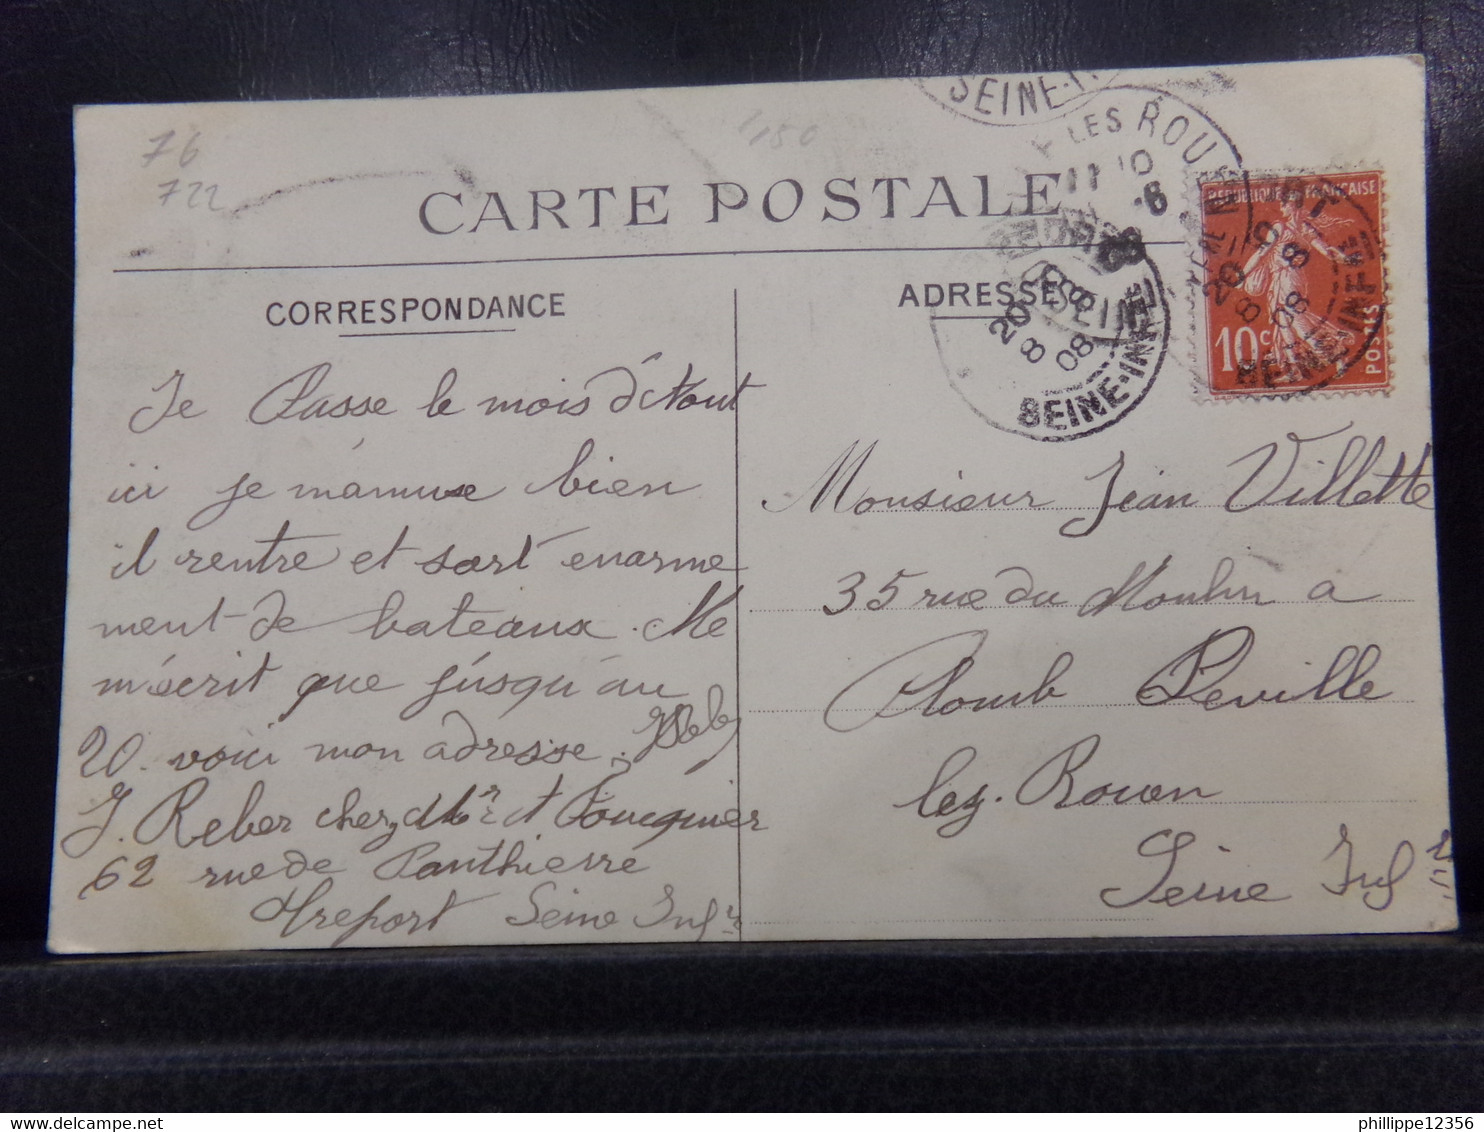 76
722
1,50
CARTE POSTALE
CORRESPONDANCE
Je Passe le mois d'Aout
ici je m'amuse bien
il rentre et sort enorme
ment de bateaux. Ne
m'écrit que jusqu'au
20. voici mon adresse.
J. Reber chez Mr et Foucquier
62 rue de Panthierre
Treport Seine Infr
ADRESSE
SEINE-I
LES ROUEN
20
8
08
SEINE-INFRE
REPUBLIQUE FRANÇAISE
10c
POSTES
20
8
08
SEINE-INFRE
Monsieur Jean Villette
35 rue du Moulin a
Blomb Peville
lez. Rouen
Seine Inf
philippe12356